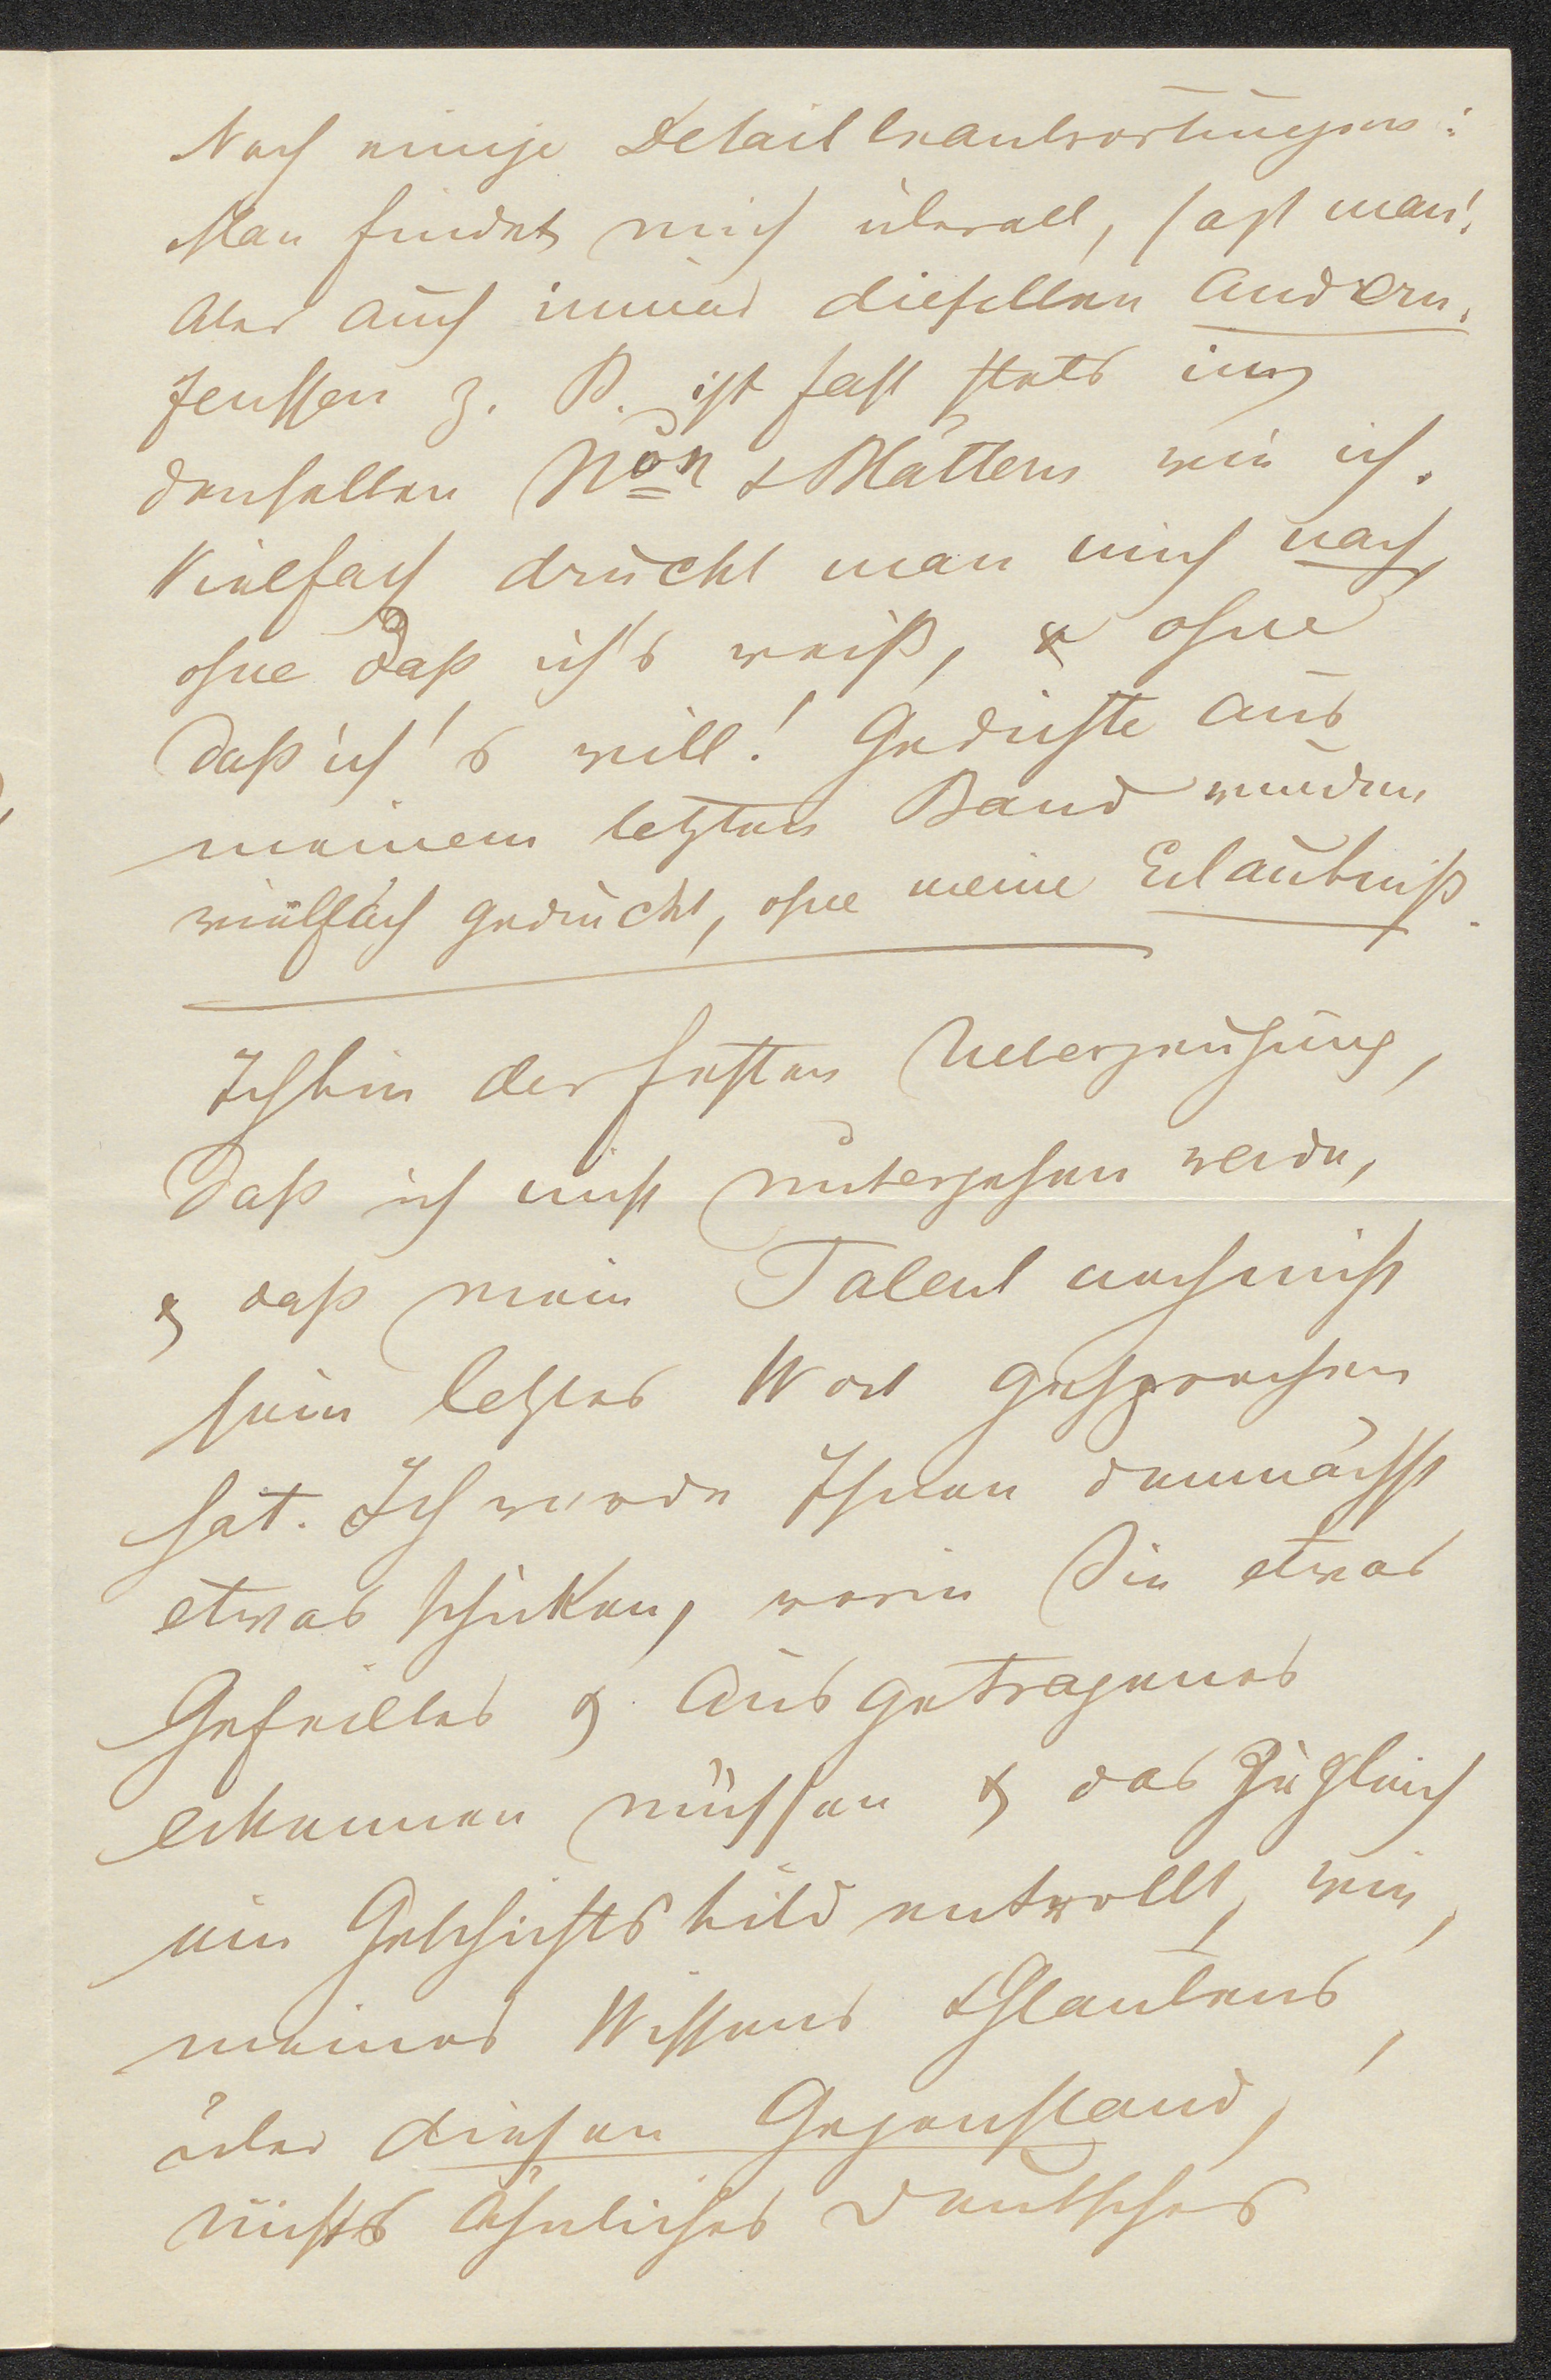 Noch einige Detailbeantwortungen:
Man findet mich überall, sagt man!
Aber auch immer dieselben Andern.
Jenssen z. B. ist fast stets in
denselben Non & Blättern wie ich.
Vielfach druckt man mich nach,
ohne daß ich's weiß, & ohne
daß ich's will! Gedichte aus
meinem letzten Band wurden
vielfach gedruckt, ohne meine Erlaubniß.
Ich bin der festen Ueberzeugung,
daß ich nicht untergehen werde,
& daß mein Talent noch nicht
sein letztes Wort gesprochen
hat. Ich werde Ihnen demnächst
etwas schicken, worin Sie etwas
Gefeiltes & Ausgetragenes
erkennen müssen & das zugleich
ein Geschichtsbild entrollt, wie,
meines Wissens & Glaubens,
über diesen Gegenstand,
nichts Ähnliches Deutsches